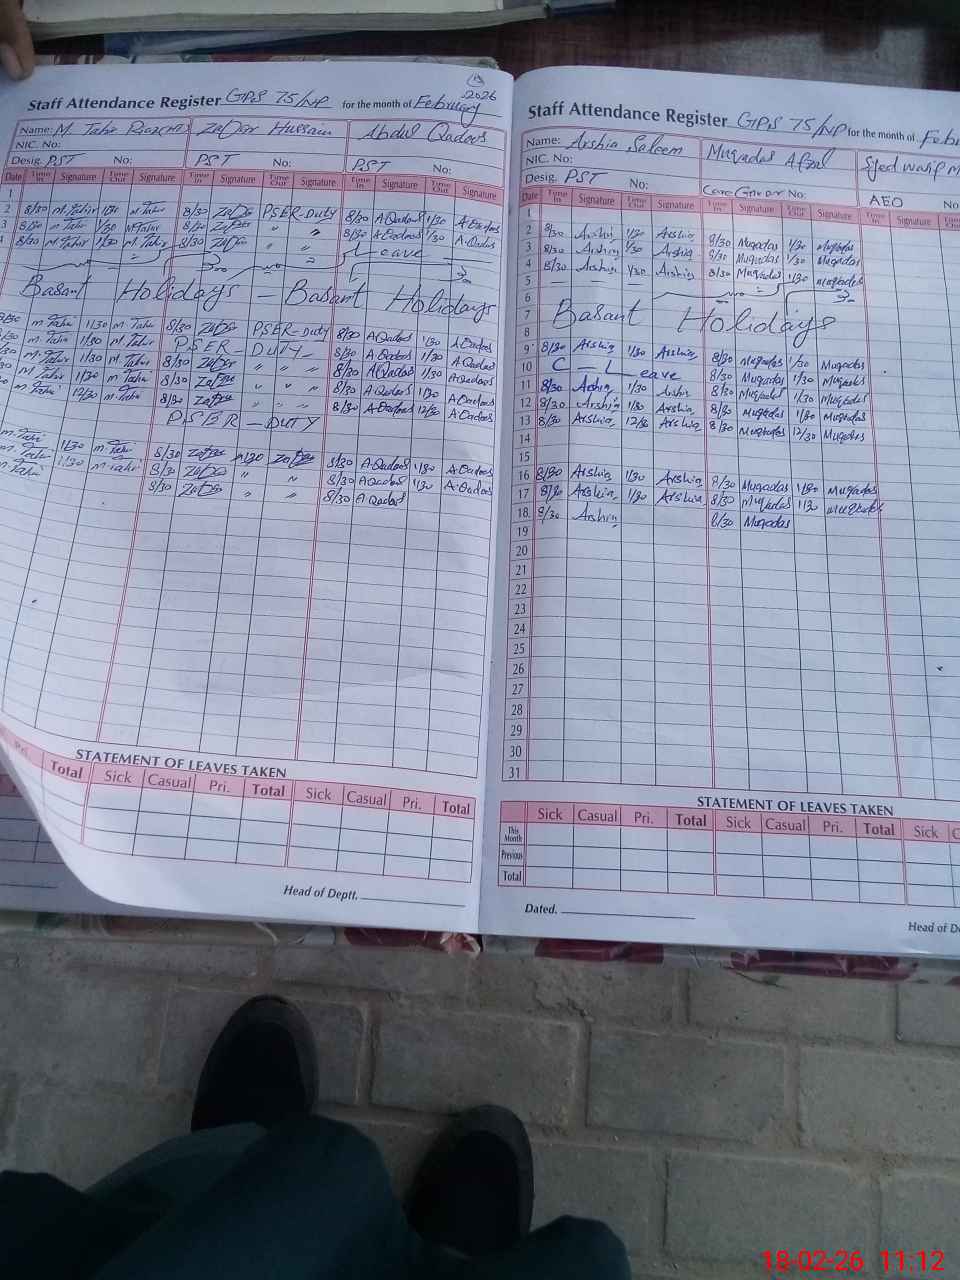 2026
Staff Attendance Register GPS 75/NP for the month of February
Name: M. Tahir Riaz(HT) Zafar Hussain Abdul Qadoos
NIC. No:
Desig. PST No: PST No: PST No:
Date Time In Signature Time Out Signature Time In Signature Time Out Signature Time In Signature Time Out Signature
1
2 8/30 M.Tahir 1/30 M.Tahir 8/30 Zafar PSER-Duty 8/30 A Qadoos 1/30 A Qadoos
3 8/30 M.Tahir 1/30 M.Tahir 8/30 Zafar " " 8/30 A Qadoos 1/30 A Qadoos
4 8/30 M.Tahir 1/30 M.Tahir 8/30 Zafar " " Leave
Basant Holidays - Basant Holidays
8/30 M.Tahir 1/30 M.Tahir 8/30 Zafar PSER-Duty 8/30 A Qadoos 1/30 A Qadoos
M.Tahir 1/30 M.Tahir PSER - DUTY - 8/30 A Qadoos 1/30 A Qadoos
M.Tahir 1/30 M.Tahir 8/30 Zafar " " 8/30 A Qadoos 1/30 A Qadoos
M.Tahir 1/30 M.Tahir 8/30 Zafar " " 8/30 A Qadoos 1/30 A Qadoos
M.Tahir 12/30 M.Tahir 8/30 Zafar " " 8/30 A Qadoos 12/30 A Qadoos
PSER - DUTY
M.Tahir 1/30 M.Tahir 8/30 Zafar 1/30 Zafar 8/30 A Qadoos 1/30 A Qadoos
M.Tahir 1/30 M.Tahir 8/30 Zafar " " 8/30 A Qadoos 1/30 A Qadoos
8/30 Zafar " " 8/30 A Qadoos
STATEMENT OF LEAVES TAKEN
Pri. Total Sick Casual Pri. Total Sick Casual Pri. Total
Head of Deptt.
Staff Attendance Register GPS 75/NP for the month of Febru
Name: Arshia Saleem Muqadas Afzal Syed
NIC. No:
Desig. PST No: Care Giver No: AEO No
Date Time In Signature Time Out Signature Time In Signature Time Out Signature Time In Signature Time Out
1
2 8/30 Arshia 1/30 Arshia 8/30 Muqadas 1/30 Muqadas
3 8/30 Arshia 1/30 Arshia 8/30 Muqadas 1/30 Muqadas
4 8/30 Arshia 1/30 Arshia 8/30 Muqadas 1/30 Muqadas
5
6
7 Basant Holidays
8
9 8/30 Arshia 1/30 Arshia 8/30 Muqadas 1/30 Muqadas
10 C - Leave 8/30 Muqadas 1/30 Muqadas
11 8/30 Arshia 1/30 Arshia 8/30 Muqadas 1/30 Muqadas
12 8/30 Arshia 1/30 Arshia 8/30 Muqadas 1/30 Muqadas
13 8/30 Arshia 12/30 Arshia 8/30 Muqadas 12/30 Muqadas
14
15
16 8/30 Arshia 1/30 Arshia 8/30 Muqadas 1/30 Muqadas
17 8/30 Arshia 1/30 Arshia 8/30 Muqadas 1/30 Muqadas
18 8/30 Arshia 8/30 Muqadas
19
20
21
22
23
24
25
26
27
28
29
30
31
STATEMENT OF LEAVES TAKEN
Sick Casual Pri. Total Sick Casual Pri. Total Sick C
This Month
Previous
Total
Dated.
Head of De
18-02-26 11:12